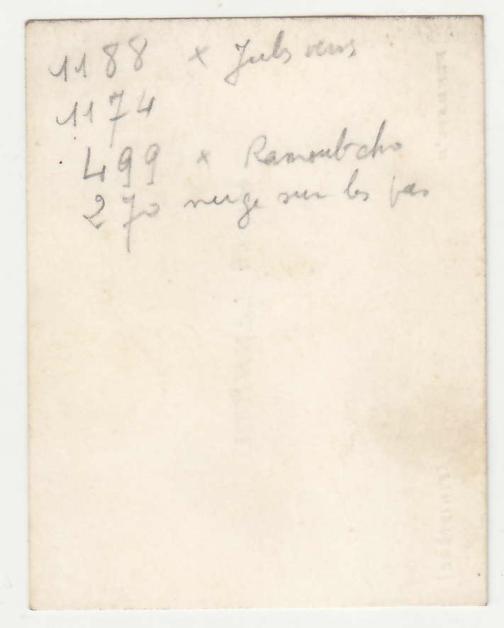 1188 x Juls vens
1174
499 x Ramuntcho
270 neige sur les pas